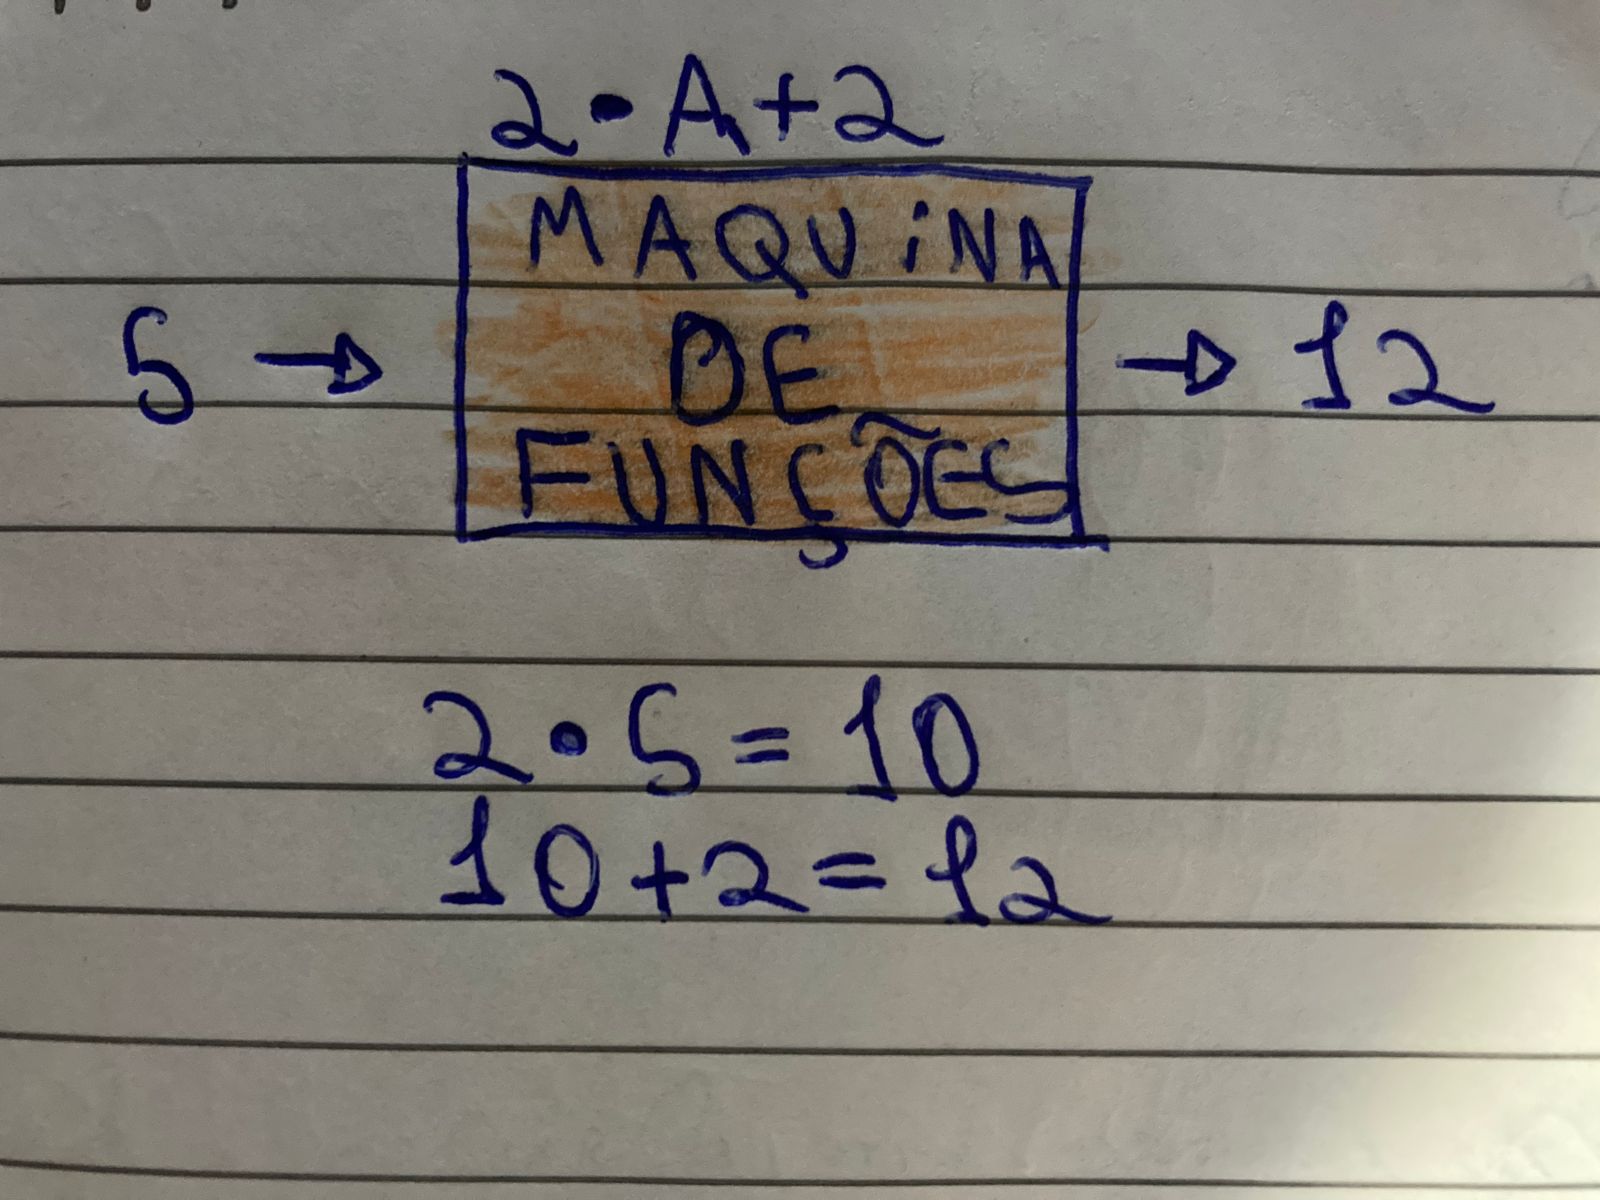 2·A+2
MAQUiNA
5 → DE → 12
FUNÇÕES
2·5=10
10+2=12